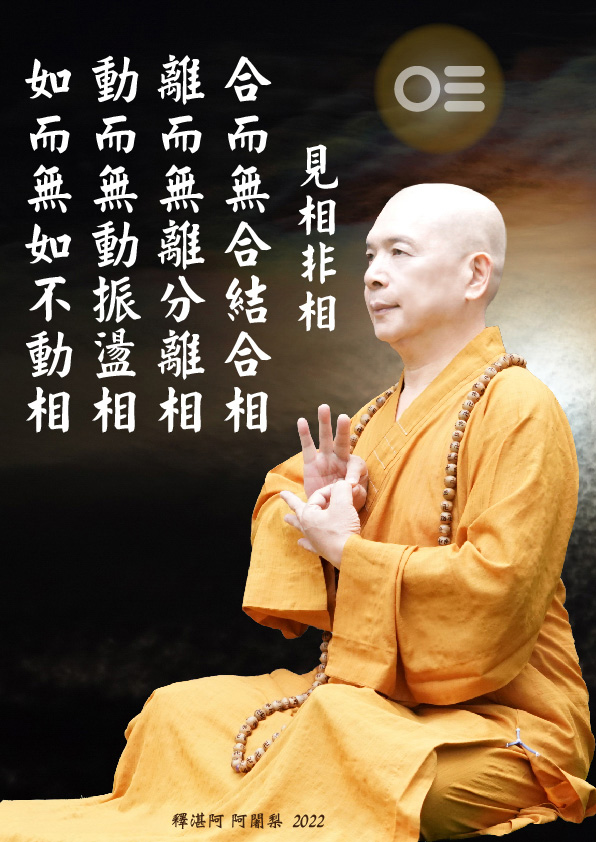 見相非相
合而無合結合相
離而無離分離相
動而無動振盪相
如而無如不動相
釋湛阿 阿闍梨 2022